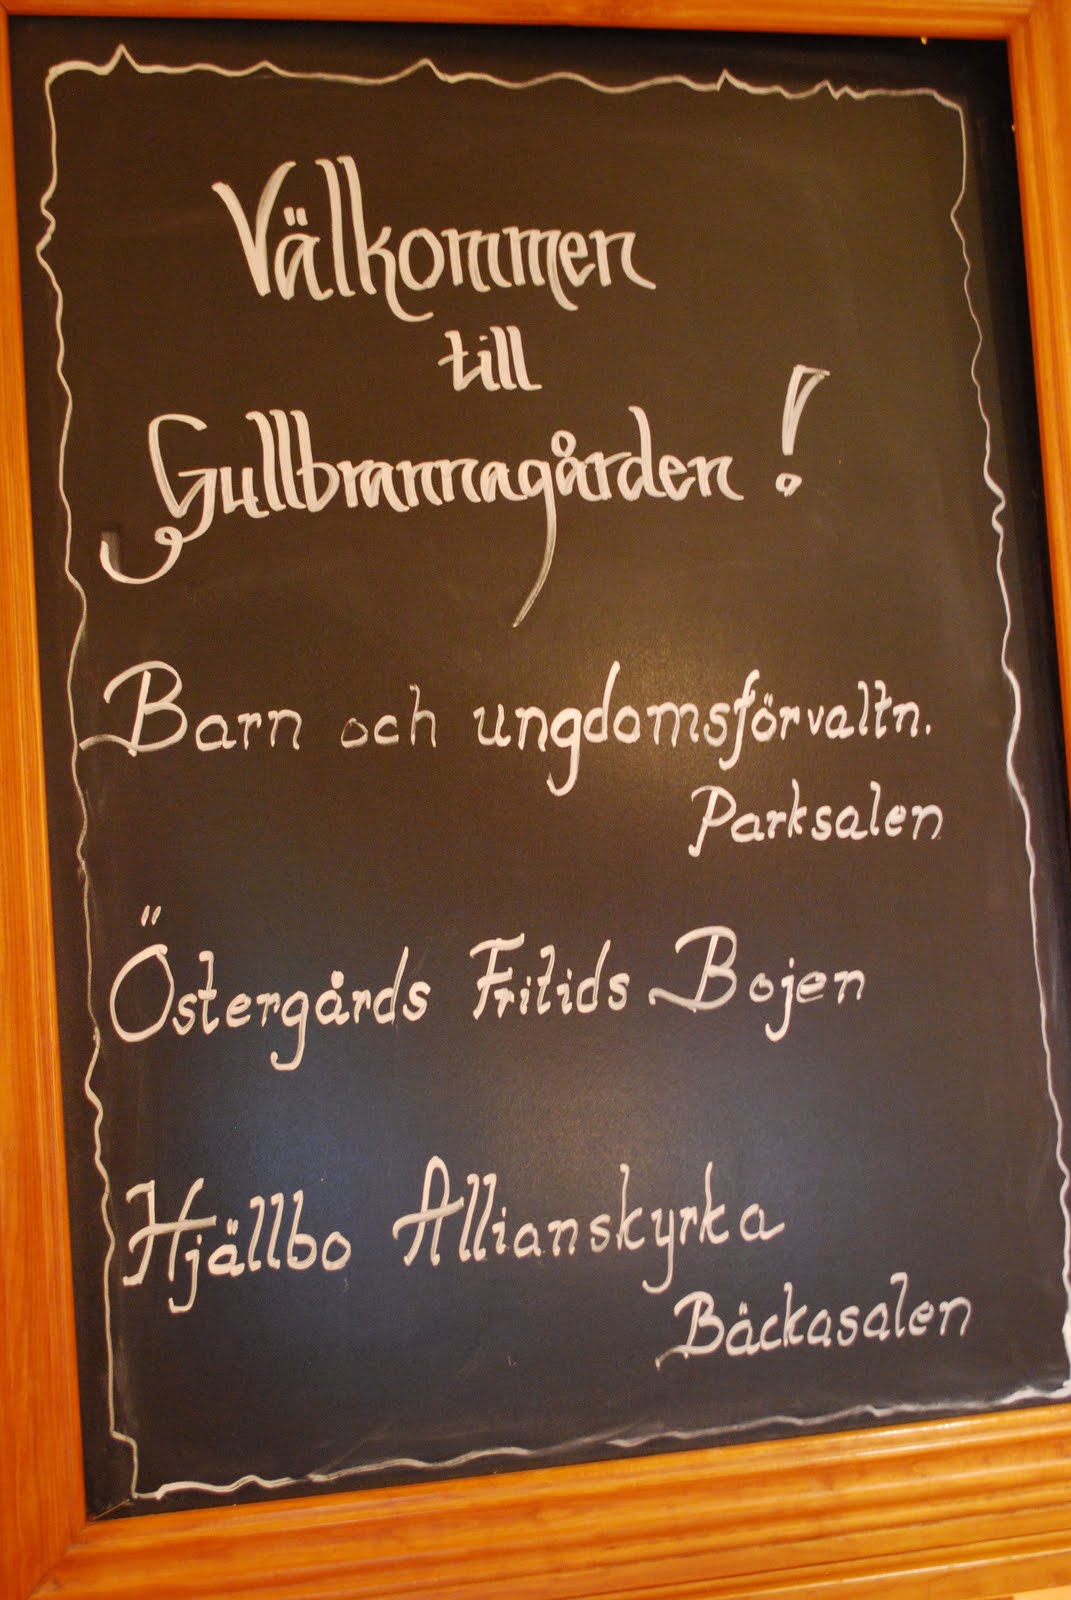 Välkommen
till
Gullbrannagården !
Barn och ungdomsförvaltn.
Parksalen
Östergårds Fritids Bojen
Hjällbo Allianskyrka
Bäckasalen